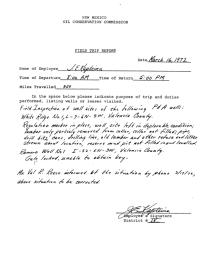 NEW MEXICO
OIL CONSERVATION COMMISSION
FIELD TRIP REPORT
Date March 16, 1972
Name of Employee
Time of Departure 8:00 AM Time of Return 5:00 PM
Miles Travelled
In the space below please indicate purpose of trip and duties
performed, listing wells or leases visited.
Field Inspection of well sites of the following P & A wells:
White Ridge No. Valencia County.
Regulation marker in place, well site left in deplorable condition,
timber only partially removed from cellar, cellar not filled, pipe,
drill bits, cans, drilling line, old lumber and other refuse and litter
strewn about location, reserve mud pit not filled in and levelled.
Romero Well No. 1 Valencia County.
Gate locked, unable to obtain key.
Mr. Val R. Reese informed of the situation by phone
above situation to be corrected
Employee's Signature
District #